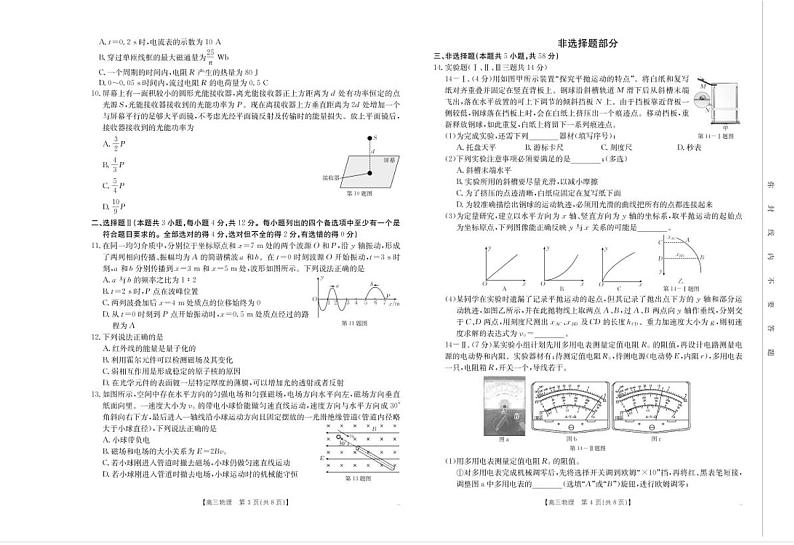 A. t=0.2 s时,电流表的示数为10 A
B. 穿过单匝线框的最大磁通量为25/π Wb
C. 一个周期的时间内,电阻R产生的热量为80 J
D. 0~0.05 s时间内,流过电阻R的电荷量为0.4 C
10. 屏幕上有一面积较小的圆形光能接收器,离光能接收器正上方距离为d处有功率恒定的点
光源S,光能接收器接收到的光能功率为P。现在离接收器上方垂直距离为2d处增加一个
与屏幕平行的足够大平面镜,不考虑光经平面镜反射及传输时的能量损失。放上平面镜后,
接收器接收到的光能功率为
A. 3/2 P
B. 4/3 P
C. 5/4 P
D. 10/9 P
S
d
屏幕
接收器
第10题图
二、选择题Ⅱ(本题共3小题,每小题4分,共12分。每小题列出的四个备选项中至少有一个是
符合题目要求的。全部选对的得4分,选对但不全的得2分,有选错的得0分)
11. 在同一均匀介质中,分别位于坐标原点和x=7 m处的两个波源O和P,沿y轴振动,形成
了两列相向传播、振幅均为A的简谐横波a和b。在t=0时刻波源O开始振动,t=3 s时
刻,a和b分别传播到x=3 m和x=5 m处,波形如图所示。下列说法正确的是
A. a与b的频率之比为1∶2
B. t=2 s时,P点在波峰位置
C. 两列波叠加后x=4 m处质点的位移始终为0
D. 从t=0时刻到P点开始振动时,x=0.5 m处质点经过的路
程为A
第11题图
12. 下列说法正确的是
A. 红外线的能量是量子化的
B. 利用霍尔元件可以检测磁场及其变化
C. 弱相互作用是形成稳定的原子核的原因
D. 在光学元件的表面镀一层特定厚度的薄膜,可以增加光的透射或者反射
13. 如图所示,空间中存在水平方向的匀强电场和匀强磁场,电场方向水平向左,磁场方向垂直
纸面向里。一速度大小为v₀的带电小球恰能做匀速直线运动,速度方向与水平方向成30°
角斜向右下方,最后进入一轴线沿小球运动方向且固定摆放的一光滑绝缘管道(管道内径略
大于小球直径),下列说法正确的是
A. 小球带负电
B. 磁场和电场的大小关系为E=2Bv₀
C. 若小球刚进入管道时撤去磁场,小球仍做匀速直线运动
D. 若小球刚进入管道时撤去磁场,小球运动时的机械能守恒
B
E
30°
第13题图
【高三物理 第3页(共8页)】
非选择题部分
三、非选择题(本题共5小题,共58分)
14. 实验题(Ⅰ、Ⅱ、Ⅲ三题共14分)
14-Ⅰ. (4分)用如图甲所示装置“探究平抛运动的特点”。将白纸和复写
纸对齐重叠并固定在竖直背板上。钢球沿斜槽轨道M滑下后从斜槽末端
飞出,落在水平放置的可上下调节的倾斜挡板N上。由于挡板靠近背板一
侧较低,钢球落在挡板上时,会在白纸上挤压出一个痕迹点。移动挡板,重
新释放钢球,如此重复,白纸上将留下一系列痕迹点。
甲
第14-Ⅰ题图
(1)为完成实验,还需下列________器材(填写序号);
A. 托盘天平 B. 游标卡尺 C. 刻度尺 D. 秒表
(2)下列实验注意事项必须要满足的是______;(多选)
A. 斜槽末端水平
B. 实验所用的斜槽要尽量光滑,以减小摩擦
C. 为了挤压的点迹清晰,白纸应固定在复写纸下面
D. 为较准确描绘出钢球的运动轨迹,必须用光滑的曲线把所有的点都连接起来
(3)为定量研究,建立以水平方向为x轴、竖直方向为y轴的坐标系,取平抛运动的起始点
为坐标原点,下列图像能正确反映y与x关系的可能是________。
A
B
C
乙
第14-Ⅰ题图
(4)某同学在实验时遗漏了记录平抛运动的起点,但其记录了抛出点下方的y轴和部分运
动轨迹,如图乙所示,并在此抛物线上取两点A、B,过A、B两点向y轴作垂线,分别交
于C、D两点,用刻度尺测出xAC、xBD及CD的长度hCD。重力加速度大小为g,则初速
度求解的表达式为v₀=________。
14-Ⅱ. (7分)某实验小组计划先用多用电表测量定值电阻R₀的阻值,再设计电路测量电
源的电动势和内阻。实验器材有:待测定值电阻R₀,待测电源(电动势E,内阻r),多用电表
一只,电阻箱R,开关一个,导线若干。
图a
图b
图c
第14-Ⅱ题图
(1)用多用电表测量定值电阻R₀的阻值。
①对多用电表完成机械调零后,先将选择开关调到欧姆“×10”挡,再将红、黑表笔短接,
调整图a中多用电表的________(选填“A”或“B”)旋钮,进行欧姆调零;
【高三物理 第4页(共8页)】
弥
封
线
内
不
要
答
题